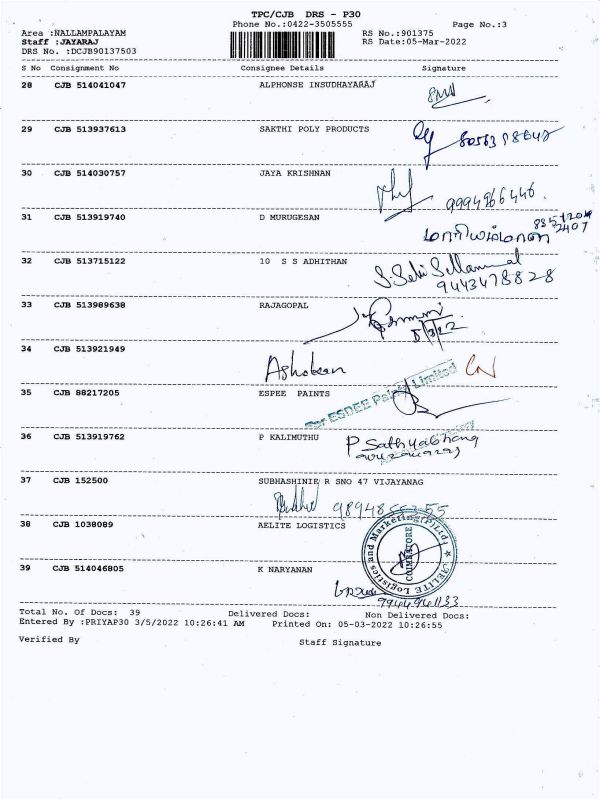 TPC/CJB DRS - P30
Phone No.:0422-3505555 Page No.:3
Area :NALLAMPALAYAM RS No.:901375
Staff :JAYARAJ RS Date:05-Mar-2022
DRS No. :DCJB90137503
S No Consignment No Consignee Details Signature
28 CJB 514041047 ALPHONSE INSUDHAYARAJ
29 CJB 513937613 SAKTHI POLY PRODUCTS
30 CJB 514030757 JAYA KRISHNAN
9994966446
31 CJB 513919740 D MURUGESAN
மாரியம்மாள்
32 CJB 513715122 10 S S ADHITHAN
9443478828
33 CJB 513989638 RAJAGOPAL
5/3/22
34 CJB 513921949
Ashokan
35 CJB 88217205 ESPEE PAINTS
For ESDEE Paints Limited
36 CJB 513919762 P KALIMUTHU
P. Sathya
37 CJB 152500 SUBHASHINIE R SNO 47 VIJAYANAG
38 CJB 1038089 AELITE LOGISTICS
AELITE Logistics and Marketing (P) Ltd.
COIMBATORE
39 CJB 514046805 K NARYANAN
9944941133
Total No. Of Docs: 39 Delivered Docs: Non Delivered Docs:
Entered By :PRIYAP30 3/5/2022 10:26:41 AM Printed On: 05-03-2022 10:26:55
Verified By Staff Signature